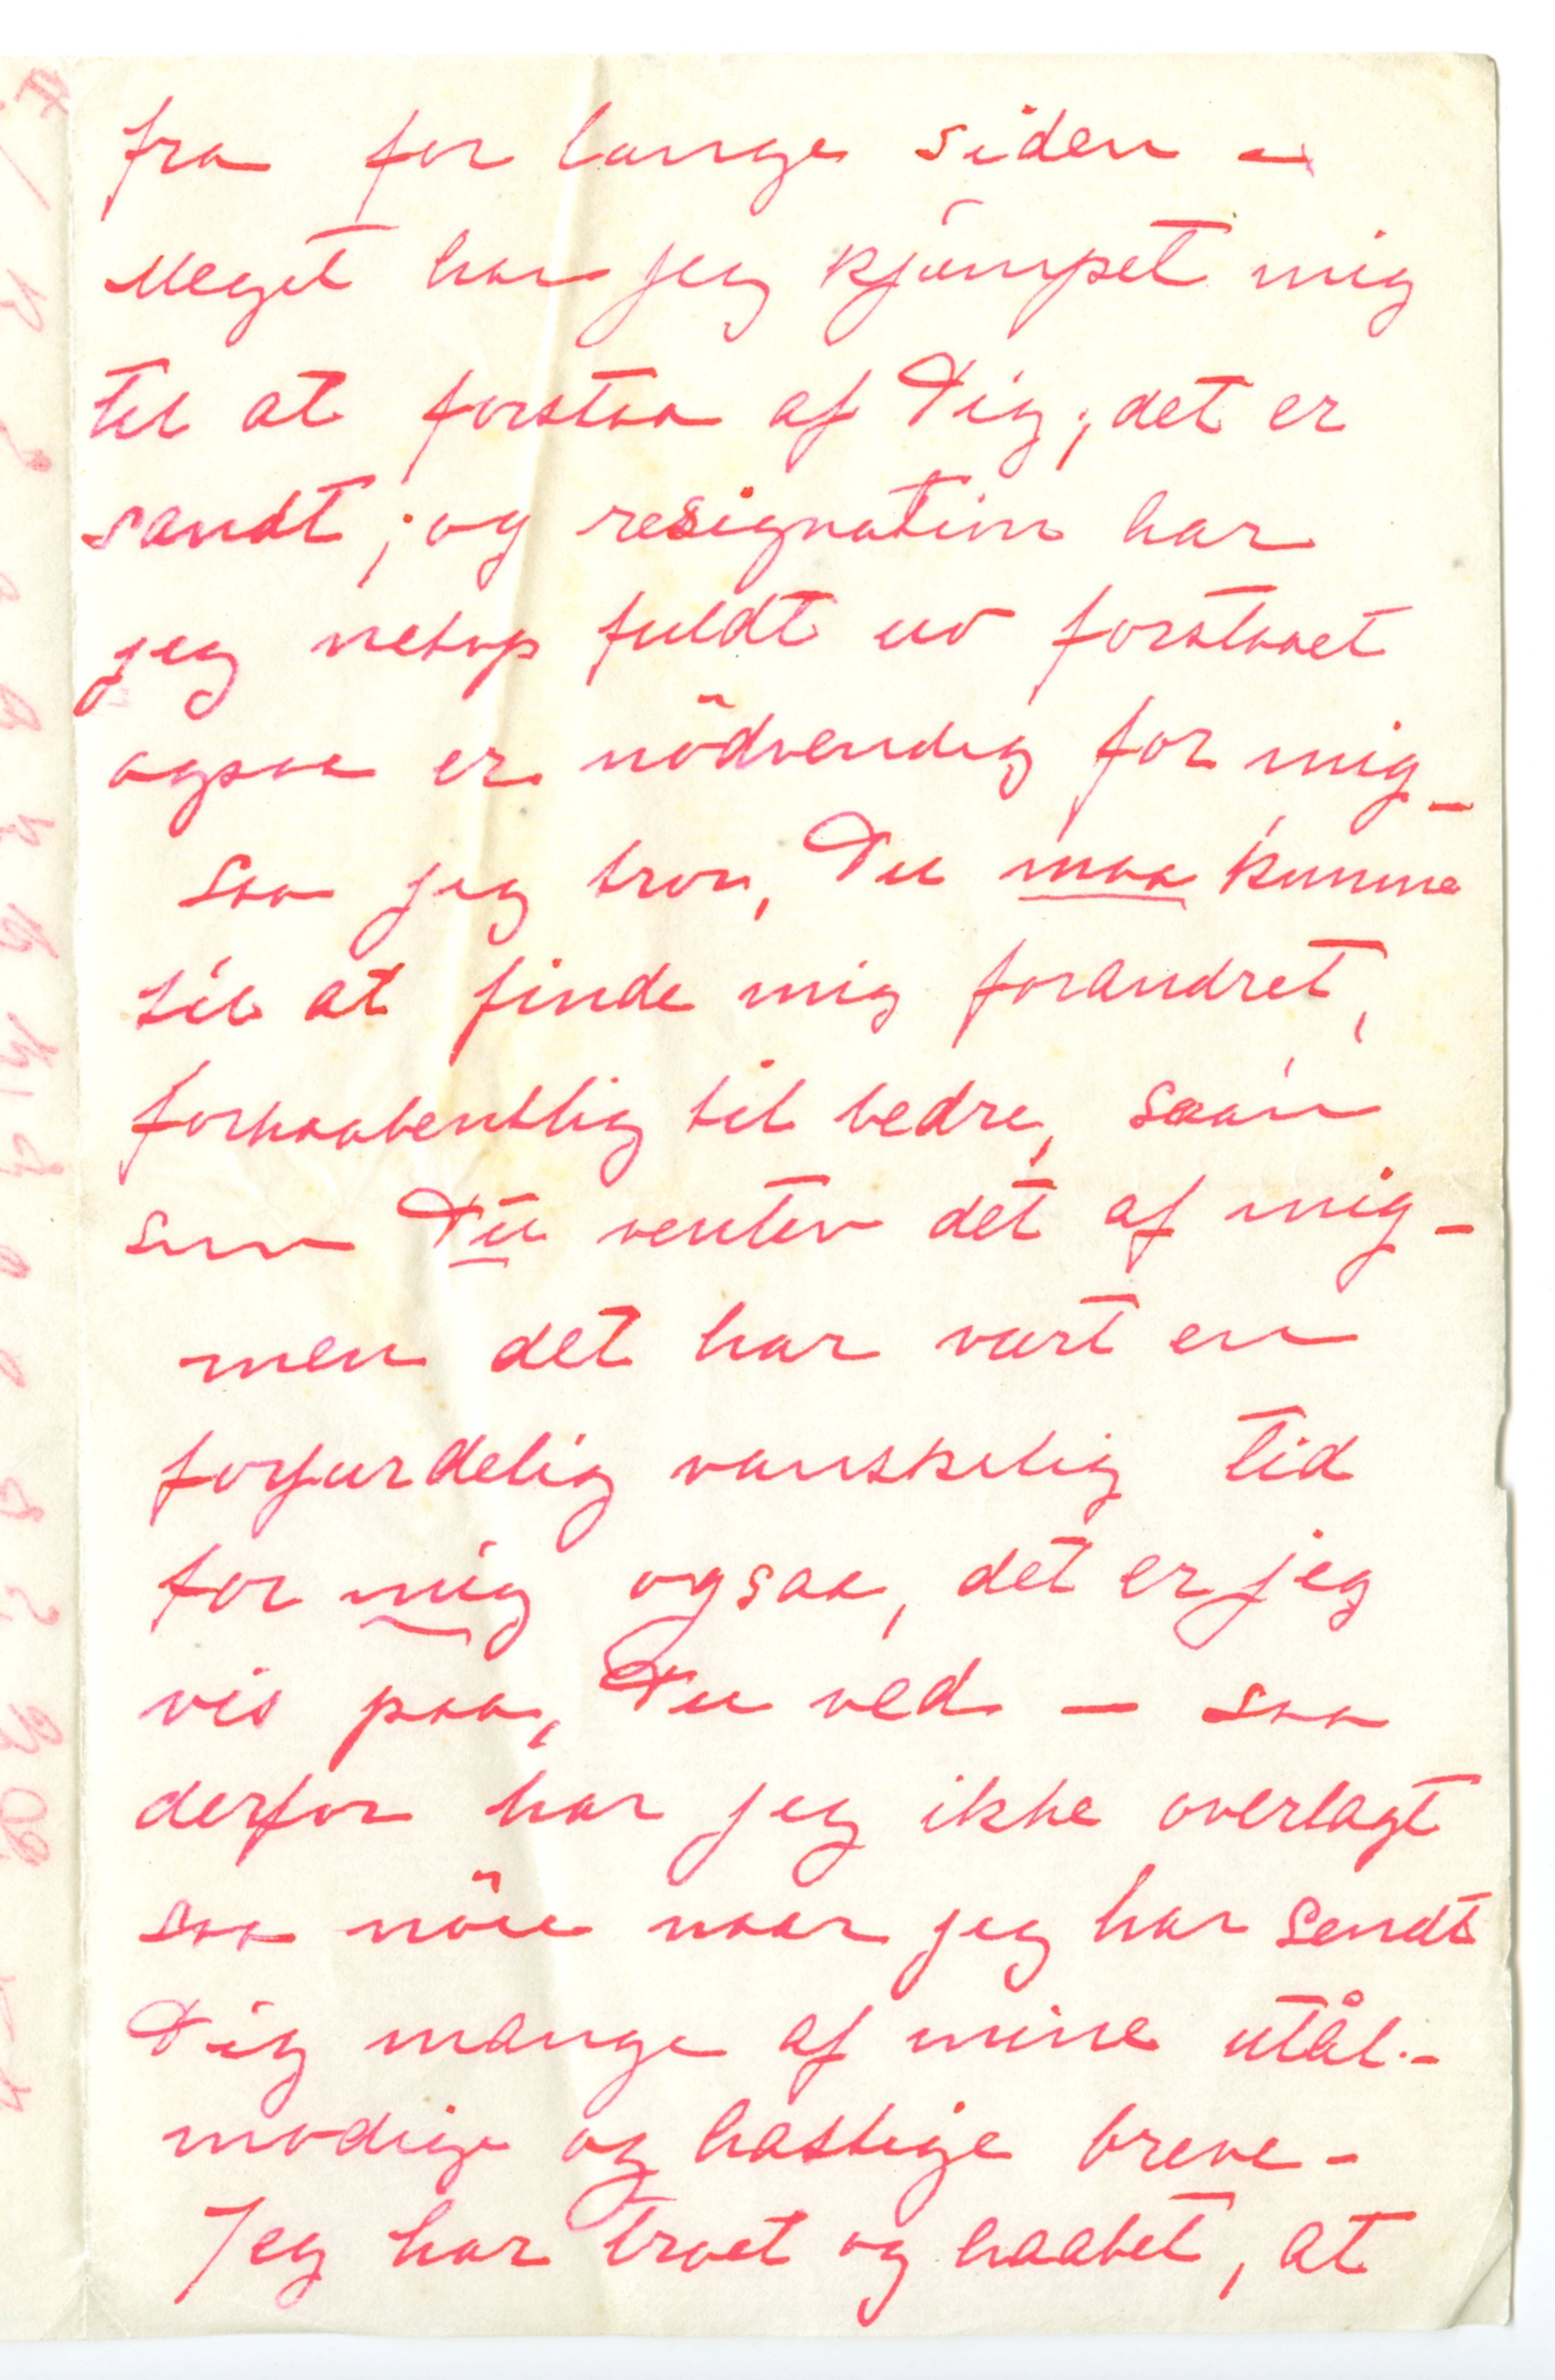 fra for lange siden –
Meget har jeg kjæmpet mig
til at forstaa af Dig; det er
sandt; og resignation har
jeg netop fuldt ud forstaaet
ogsaa er nödvendig for mig –
Saa jeg tror, Du maa kunne
til at finde mig forandret,
forhaabentlig til bedre, saan
som Du venter det af mig –
men det har vært en
forfærdelig vanskelig tid
for mig ogsaa, det er jeg
vis paa, Du ved – saa
derfor har jeg ikke overlagt
saa nöie naar jeg har sendt
Dig mange af mine utål-
modige og hastige breve –
Jeg har troet og haabet, at